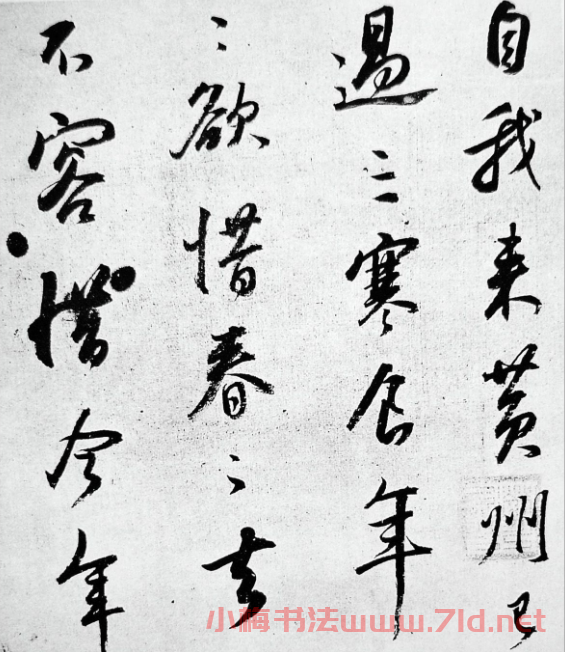 自我来黄州已
過三寒食年
〻欲惜春〻去
不容惜今年
小梅书法www.7ld.net